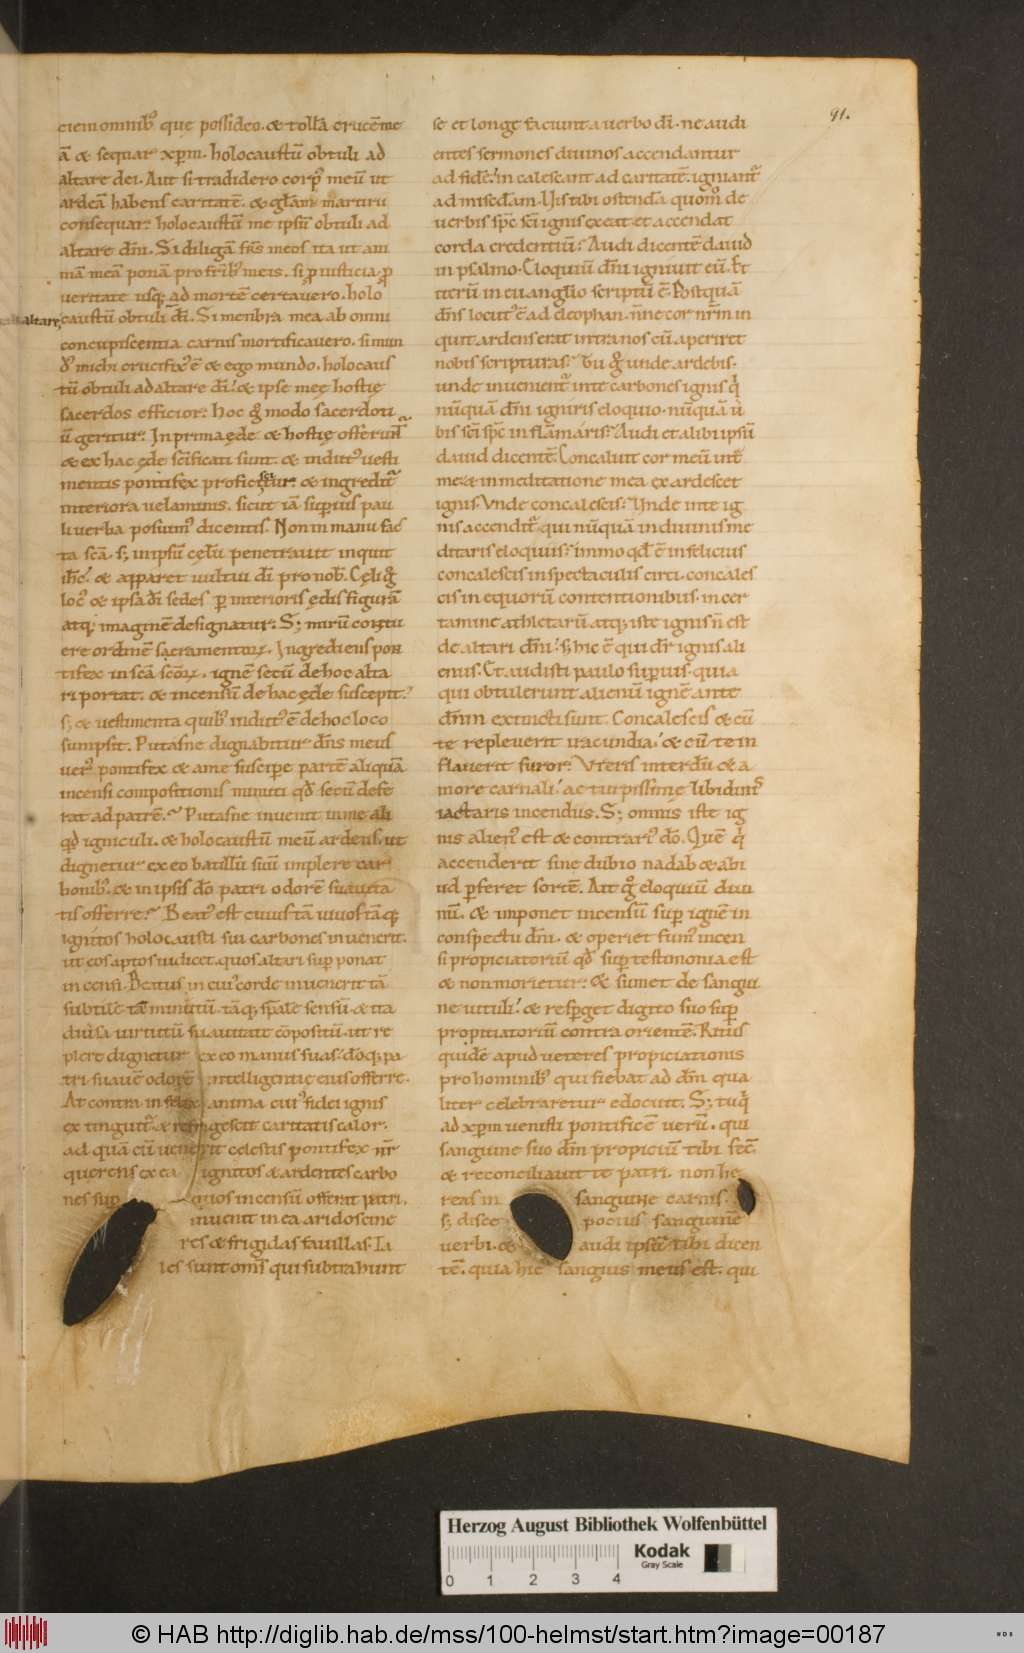 91.
ciem omnib; que possideo. & tollā crucē me
ā & sequar xp̄m. holocaustū obtuli ad
altare dei. Aut si tradidero corp' meū ut
ardeā habens caritatē. & gl̄am martirii
consequar: holocaustū me ipsū obtuli ad
altare dn̄i. Si diligā fr̄s meos ita ut ani
mā meā ponā pro frīb; meis. si p iusticia p
ueritate usq; ad mortē certauero. holo
altare caustū obtuli dī. Si menbra mea ab omni
concupiscentia carnis mortificauero. si mun
d' michi crucifix' ē & ego mundo. holocaus
tū obtuli ad altare dī. & ipse meę hostię
sacerdos efficior: hoc g modo sacerdoti
ū geritur. In prima ęde & hostię offerunt
& ex hac ęde sc̄ificati sunt. & indut' uesti
mentis pontifex proficiscitur & ingredit̄
interiora uelaminis. sicut iā superius pau
li uerba posuim' dicentis. Non in manu fac
ta sc̄a. s; in ipsū cęlū penetrauit inquit
ih̄c. & apparet uultui dī pro nob. Cęli g
loc' & ipsa dī sedes p interioris ędis figurā
atq; imaginē designatur. S; mirū contu
ere ordinē sacramentorꝝ. Ingrediens pon
tifex in sc̄a sc̄orꝝ. ignē secū de hoc alta
ri portat. & incensū de hac ęde suscepit.
s; & uestimenta quib; indut' ē de hoc loco
sumpsit. Putasne dignabitur dn̄s meus
uer' pontifex & a me suscipe partē aliquā
incensi compositionis minuti qd secū defe
rat ad patrē. Putasne inuenit in me ali
qd igniculi. & holocaustū meū ardens. ut
dignetur ex eo batillū suū implere car
bonib;. & in ipsis dō patri odorē suauita
tis offerre. Beat' est cuius tā uiuos tāq;
ignitos holocausti sui carbones inuenerit.
ut eos aptos iudicet. quos altari superponat
incensi. Beatus in cui' corde inuenerit tā
subtile tā minutū. tāq; sp̄ale sensū. & ita
diuisa uirtutū suauitate cōpositū. ut re
plere dignetur ex eo manus suas. dōq; pa
tri suauē odorē intelligentię eius offerre.
At contra infelix anima cui' fidei ignis
extinguit̄. & refrigescit caritatis calor.
ad quā cū uenerit celestis pontifex nr̄
querens ex ea ignitos & ardentes carbo
nes sup quos incensū offerat patri.
inuenit in ea aridos cine
res & frigidas fauillas. Ta
les sunt om̄s qui subtrahunt
se et longe faciunt a uerbo dī. ne audi
entes sermones diuinos accendantur
ad fidē. incalescant ad caritatē. igniant̄
ad misc̄dam. Uis tibi ostendā quom de
uerbis sp̄c sc̄i ignis exeat et accendat
corda credentiū? Audi dicentē dauid
in psalmo. Eloquiū dn̄i igniuit eū. Et
iterū in euangl̄io scriptū ē. Postquā
dn̄s locut' ē ad cleophan. n̄ne cor nr̄m in
quit ardens erat intra nos cū aperiret
nobis scripturas? Tu g unde ardebis.
unde inuenient̄ in te carbones ignis q
nūquā dn̄i igniris eloquio. nūquā ū
bis sc̄i sp̄c inflāmaris? Audi et alibi ipsū
dauid dicentē. Concaluit cor meū intˉ
me & in meditatione mea exardescet
ignis. Unde concalescis? Unde in te ig
nis accendit̄ qui nūquā in diuinis me
ditaris eloquiis? immo qd ē infelicius
concalescis in spectaculis circi. concales
cis in equorū contentionibus. in cer
tamine athletarū atq; iste ignis n̄ est
de altari dn̄i. s; hic ē qui dr̄ ignis ali
enus. Et audisti paulo superius. quia
qui obtulerunt alienū ignē ante
dn̄m extincti sunt. Concalescis & cū
te repleuerit iracundia. & cū te in
flauerit furor. Ureris interdū & a
more carnali. ac turpissimę libidinis
iactaris incendiis. S; omnis iste ig
nis alien' est & contrari' dō. Quē q
accenderit sine dubio nadab & abi
ud pferet sortē. Ait g eloquiū diui
nū. & imponet incensū sup ignē in
conspectu dn̄i. & operiet fum' incen
si propiciatoriū qd sup testimonia est
& non morietur. & sumet de sangui
ne uituli. & resperget digito suo sup
propitiatoriū contra orientē. Ritus
quidē apud ueteres propiciationis
pro hominib; qui fiebat ad dn̄m qua
liter celebraretur edocuit. S; tu q
ad xp̄m uenisti pontificē uerū. qui
sanguine suo dm̄ propiciū tibi fec̄.
& reconciliauit te patri. non he
reas in sanguine carnis.
s; disce pocius sanguinē
uerbi. & audi ipsū tibi dicen
tē. quia hic sanguis meus est. qui
Herzog August Bibliothek Wolfenbüttel
Kodak
Gray Scale
0 1 2 3 4
© HAB http://diglib.hab.de/mss/100-helmst/start.htm?image=00187